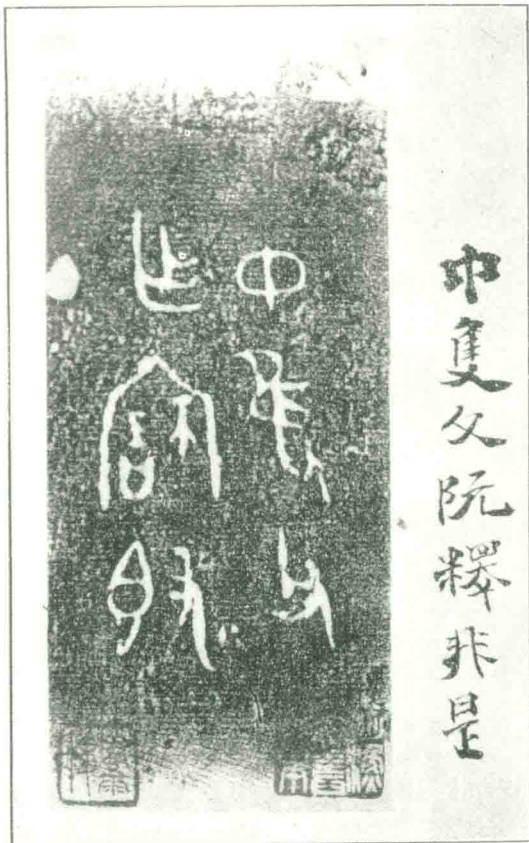 中隻父阮釋非是
中隻父
乍寶𣪘